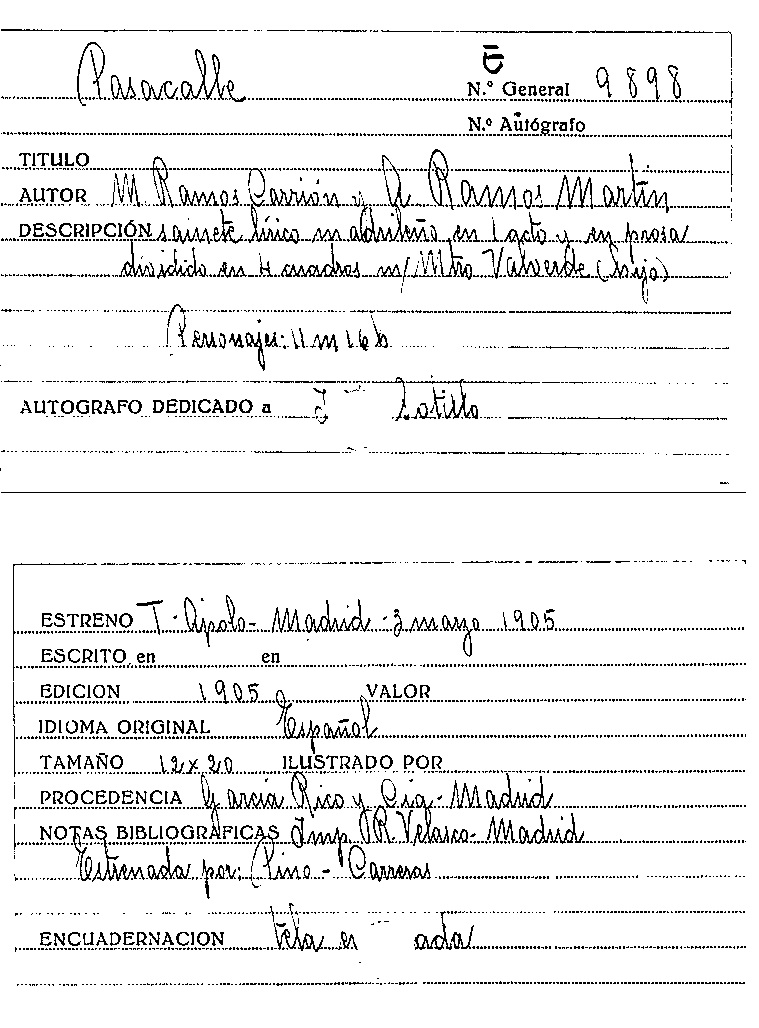 Pasacalle
E
N.º General 9898
N.º Autógrafo
TITULO
AUTOR M Ramos Carrión y A Ramos Martín
DESCRIPCIÓN sainete lírico madrileño en 1 acto y en prosa
dividido en 4 cuadros m/ Mtro Valverde (hijo)
Personajes: 11 m 16 h
AUTOGRAFO DEDICADO a J Lotillo
ESTRENO T. Apolo - Madrid - 3 marzo 1905
ESCRITO en en
EDICION 1905 VALOR
IDIOMA ORIGINAL Español
TAMAÑO 12 x 20 ILUSTRADO POR
PROCEDENCIA García Rico y Cia - Madrid
NOTAS BIBLIOGRAFICAS Imp. R Velasco - Madrid
Estrenada por: Pino - Carreras
ENCUADERNACION tela